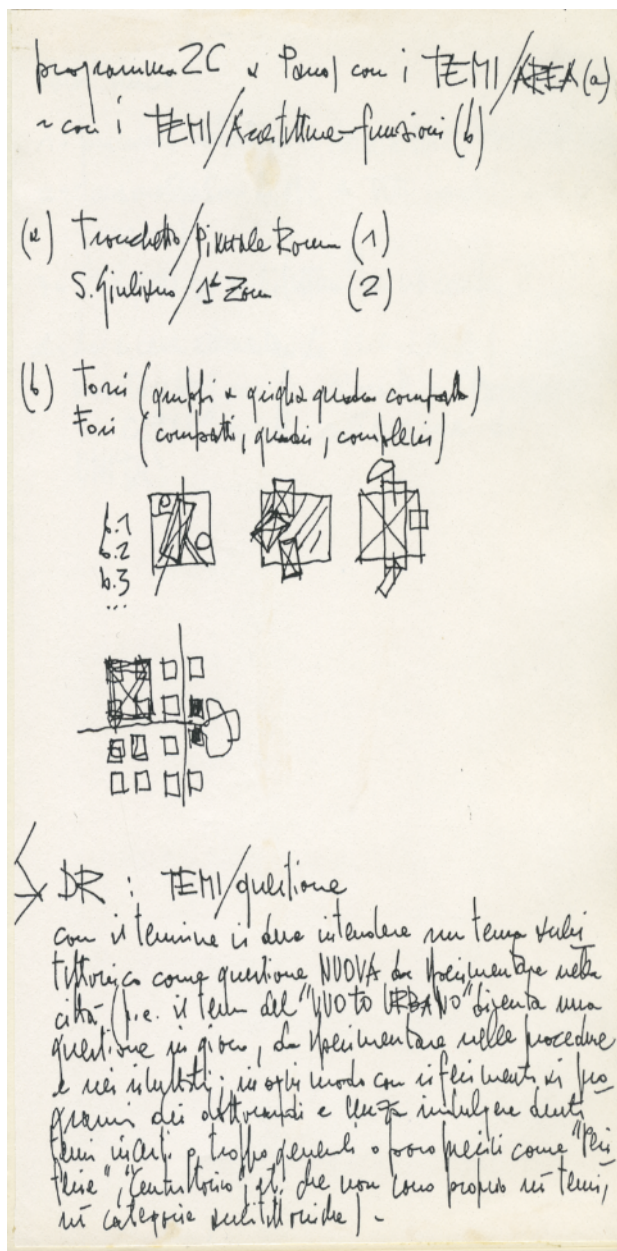 programma 2C x Panos con i TEMI/AREA (a)
~ con i TEMI/Architetture-funzioni (b)
(a) Tronchetto/Piazzale Roma (1)
S. Giuliano/1ª Zona (2)
(b) Torri (gruppi a griglia quadra compatta)
Fori (compatti, quadri, complessi)
b.1
b.2
b.3
...
DR : TEMI/questione
con il termine si deve intendere un tema archi
tettonico come questione NUOVA da sperimentare nella
città (p.e. il tema del "VUOTO URBANO" diventa una
questione in gioco, da sperimentare nelle procedure
e nei risultati; in ogni modo con riferimenti ai pro
grammi dei dottorandi e senza indulgere
temi incerti o troppo generali o poco precisi come "Peri
feria", "Centro storico", etc. che non sono proprio né temi,
né categorie architettoniche). -